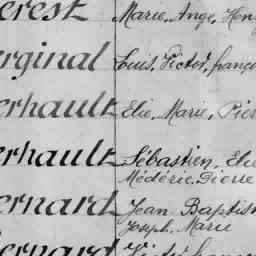 erest Marie, Ange, Hon
erginal Louis, Victor, franço
erhault Elie, Marie, Pier
erhault Sébastien, Elie
Médéric, Pierre
ernard Jean Baptis
Joseph, Marie
ernard